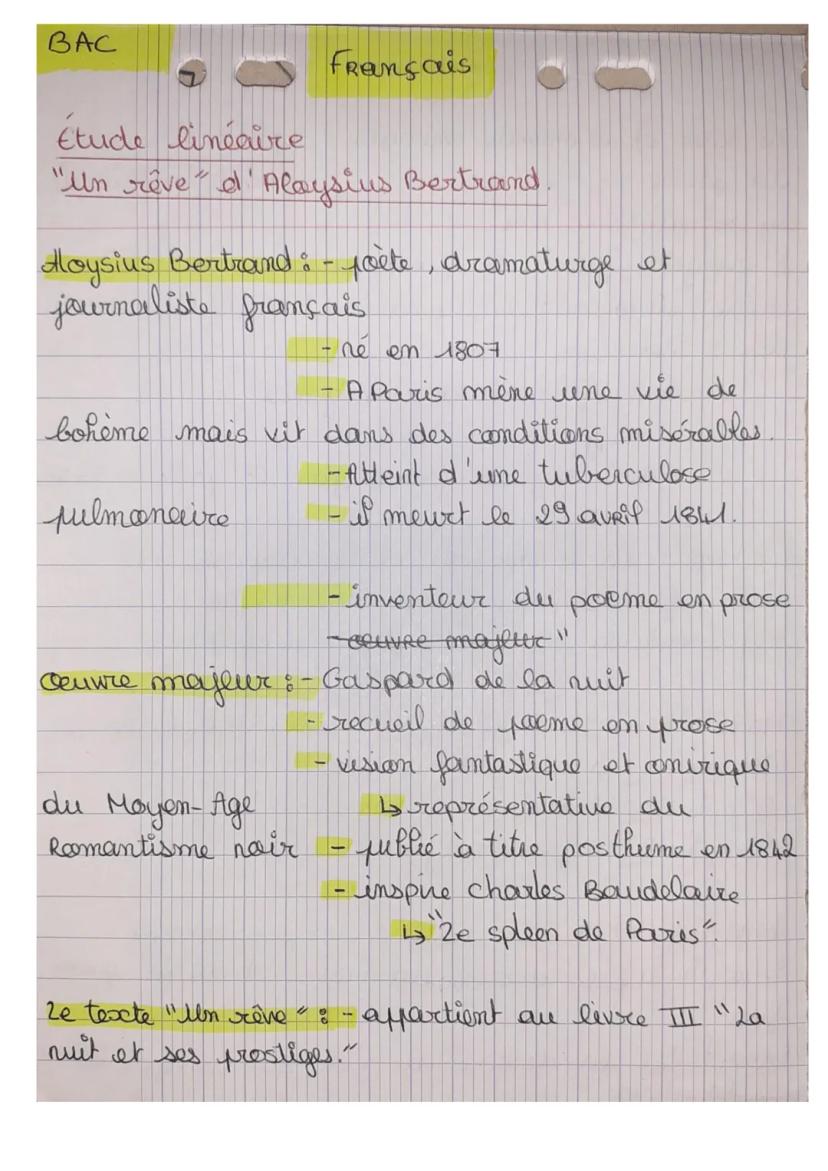 BAC
Français
Étude linéaire
"Un rêve" d'Aloysius Bertrand.
Aloysius Bertrand : - poète, dramaturge et
journaliste français
- né en 1807
- A Paris mène une vie de
bohème mais vit dans des conditions misérables.
- Atteint d'une tuberculose
pulmonaire - il meurt le 29 avril 1841.
- inventeur du poeme en prose
- oeuvre majeur"
œuvre majeur : - Gaspard de la nuit
- recueil de poeme en prose
- vision fantastique et onirique
du Moyen-Age ↳ représentative du
Romantisme noir - publié à titre posthume en 1842
- inspire Charles Baudelaire
↳ "Le spleen de Paris".
Le texte "Un rêve" : - appartient au livre III "La
nuit et ses prestiges."